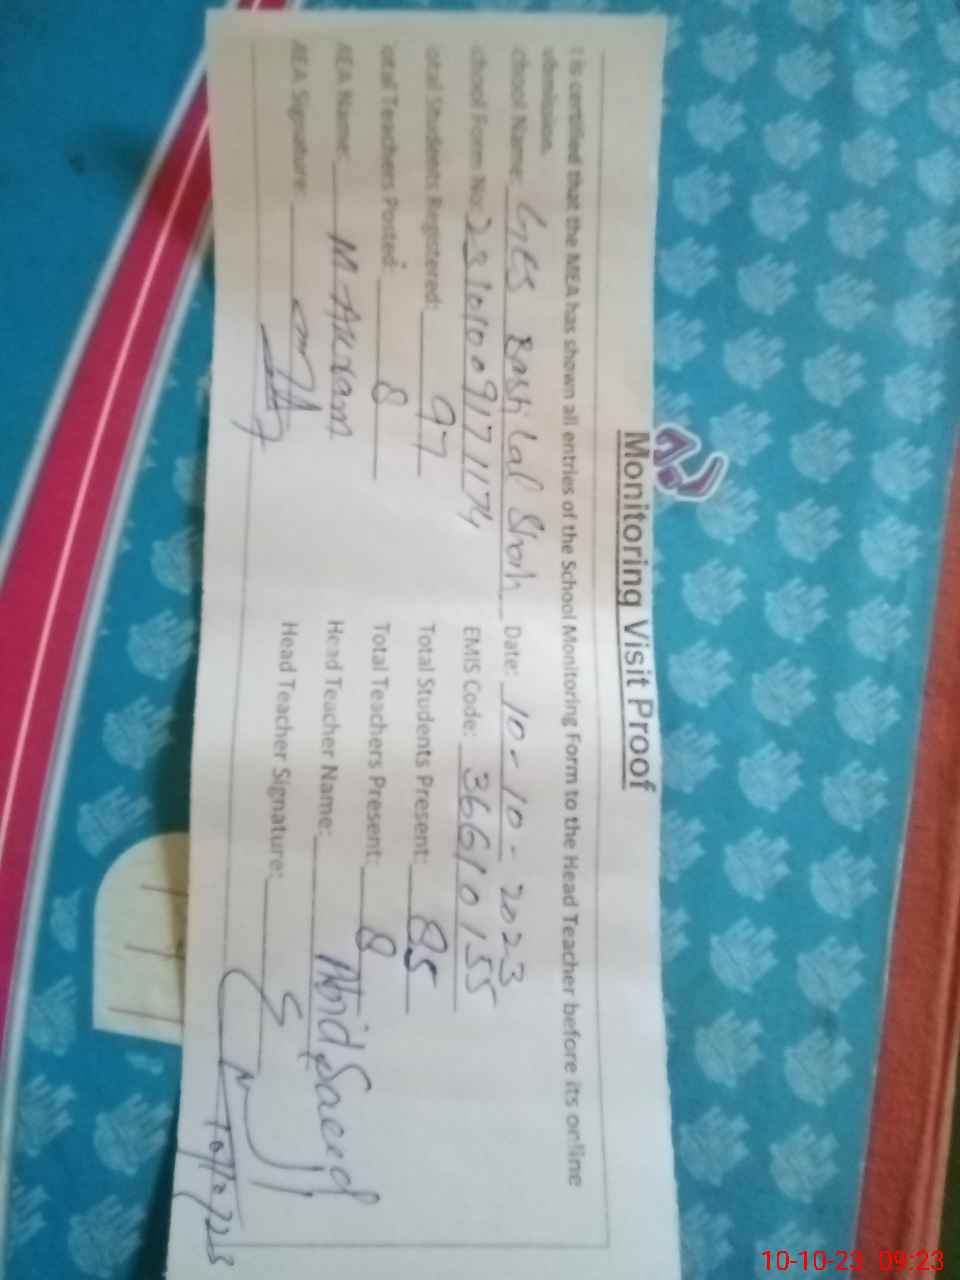 Monitoring Visit Proof
t is certified that the MEA has shown all entries of the School Monitoring Form to the Head Teacher before its online
ubmission.
chool Name: GES Basti Lal Shah Date: 10-10-2023
chool Form No: 23101009171174 EMIS Code: 36610155
otal Students Registered: 97 Total Students Present: 85
otal Teachers Posted: 8 Total Teachers Present: 8
AEA Name: M Akram Head Teacher Name: Abid Saeed
AEA Signature: Head Teacher Signature:
10/10/23
10-10-23 09:23